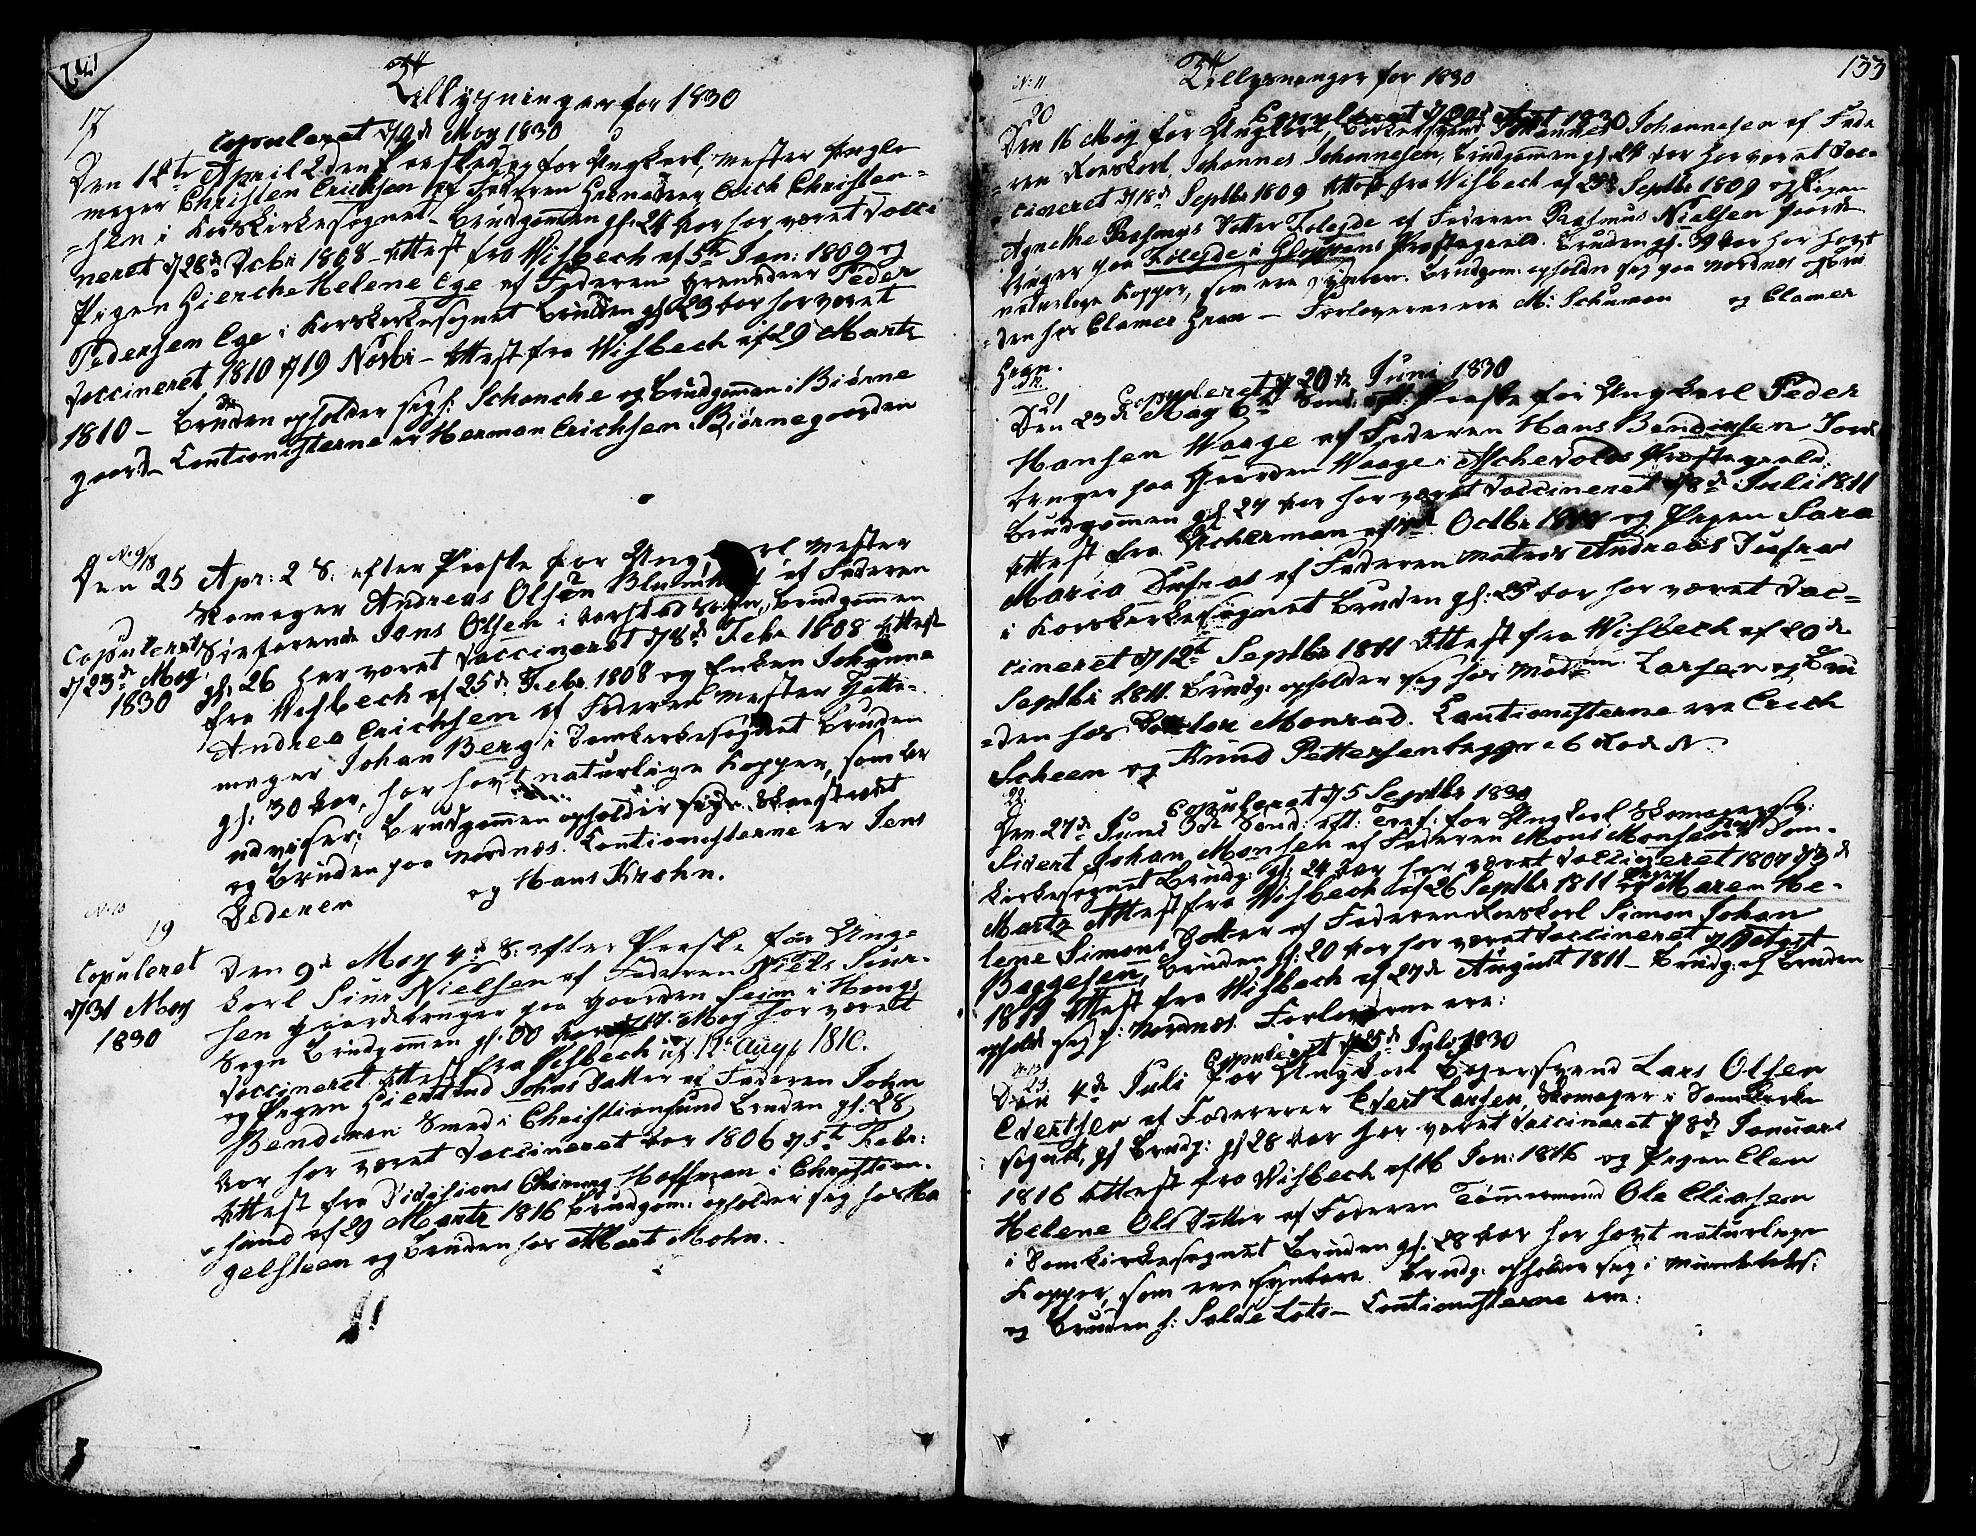 Tillysninger for 1830
17
Copuleret d 9de May 1830
Den 18de April 2den for Ungkarl, Mester
mager Christen Erichsen af Faderen Grenadeer Erich Christen-
sen i Korskirkesognet Brudgommen gl: 24 Aar har været Vacci
neret d 28de Octbr 1808 - Attest fra Wisbech af 5te Jan: 1809 og
Pigen Gierche Helene Ege af Faderen Grenadeer Peder
Pedersen Ege i Korskirkesognet Bruden gl 23 Aar har været
Vaccineret 1810 d 19 Novbr - Attest fra Wisbech af 29 Martz
1810 - Bruden opholder sig h: Schanche og Brudgommen i Biørne
gaard - Cautionisterne er Herman Erichsen Biørnegaarden
No 9/18
Den 25 Apr: 2 S. efter Paaske for Ungkarl Mester
Skomager Andreas Olsen af Faderen
Copuleret
d 23de May
1830
Jens Olsen i Brudgommen
gl: 26 har været Vaccineret d 8de Febr 1808 Attest
fra Wisbech af 25de Febr. 1808 og Enken Johanne
Andrea Erichsen af Faderen Mester Hatte-
mager Johan Berg i Domkirkesognet Bruden
gl: 30 Aar, har havt naturlige Kopper, som er
udviser; Brudgommen opholder sig i Strandstrædet
og Bruden paa Nordnæs. Cautionisterne er Jens
Pedersen og Hans Krohn.
No 10
19
Copuleret
d 31 May
1830
Den 9de May 4de S. efter Paaske for Ung-
karl Siur Nielsen af Faderen Niels Siur-
sen Gaardbruger paa Gaarden Seim i Hougs
Sogn Brudgommen gl: 30 Aar 17 May har været
Vaccineret Attest fra Wisbech af 12 Aug 1810.
og Pigen Giertrud Johns Datter af Faderen John
Bendixen Smed i Christiansund Bruden gl: 28
Aar har været Vaccineret Aar 1806 d 5te Febr:
Attest fra Divisions Chirurg Hoffman i Christian-
sund af 29 Martz 1816 Brudgom: opholder sig hos Ma
gelsteen og Bruden hos Albert Mohn.
Tillysninger for 1830
133
No 11
20
Copuleret d 1830
Den 16 May for Ungkarl, Johannes Johannesen af Fade
ren Korskarl Johannes Johannesen, Brudgommen gl. 24 Aar har været Vac-
cineret d 18de Septbr 1809 Attest fra Wisbech af 25de Septbr 1809 og Pigen
Agnethe Rasmus Datter Foleyde af Faderen Rasmus Nielsen Gaard
bruger paa Foleyde i Gloppens Præstegield. Bruden gl. 39 Aar har havt
naturlige Kopper, som ere synbare. Brudgom: opholder sig paa Nordnes og Bru
den hos Clamer Gran - Forloverne ere M: Schuman og Clamer
Gran.
21
Copuleret d 20de Juni 1830
Den 23de May 6te Sønd: eft: Paaske for Ungkarl Peder
Hansen Waage af Faderen Hans Bendixsen Jord
bruger paa Gaarden Waage i Aschevolds Præstegield.
Brudgommen gl. 27 Aar har været Vaccineret d 8de Juli 1811
Attest fra Ackerman af Octbr og Pigen Sara
Maria Dufras af Faderen Matros Andreas Dufras
i Korskirkesognet Bruden gl: 25 Aar har været Vac-
cineret d 12te Septbr 1811 Attest fra Wisbech af 20de
Septbr 1811. Brudg: opholder sig hos Madm Larsen og Bru
den hos Doctor Monrad. Cautionisterne ere Erich
Scheen og Knud Pettersen begge 6 Rode N
22
Copuleret d 5 Septbr 1830
Den 27de Juni 3de Sønd: eft: Tref: for Ungkarl Skomagersv:
Sivert Johan Monsen af Faderen Mons Monsen i Dom-
kirkesognet Brudg: gl. 24 Aar har været Vaccineret 1807 d 3de
Martz Attest fra Wisbech af 26 Septbr 1811 og Pigen Maren He-
lene Simons Datter af Faderen Korskarl Simon Johan
Baggesen, Bruden gl: 20 Aar har været Vaccineret d
1811 Attest fra Wisbech af 27de August 1811 - Brudg: og Bruden
opholde sig p: Nordnæs Forloverne ere:
23
Copuleret d 25de July 1830
Den 4de Juli for Ungkarl Bøgersvend Lars Olsen
Evertsen af Faderen Evert Larsen, Skomager i Domkirke
sognet, Brudg: gl 28 Aar har været Vaccineret d 8de Januari
1816 Attest fra Wisbech af 16 Jan: 1816 og Pigen Elen
Helene Ols Datter af Faderen Tømmermand Ole Eliasen
i Domkirkesognet Bruden gl: 28 Aar har havt naturlige
Kopper, som ere synbare. Brudg: opholder sig i
og Bruden h: Cautionisterne ere: